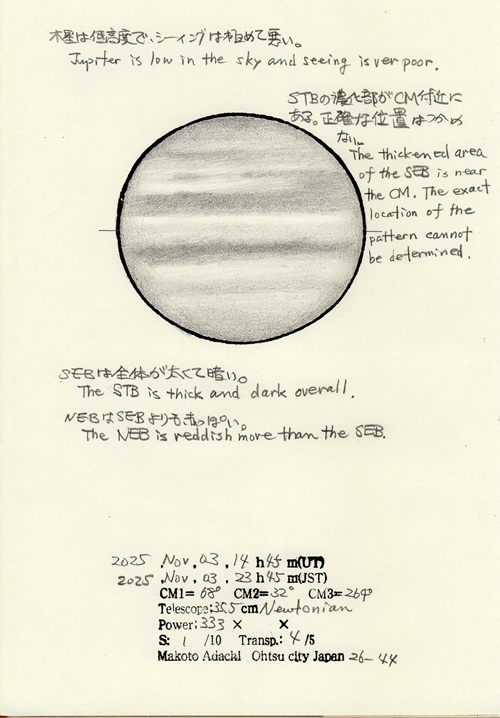 木星は低高度で、シーイングは極めて悪い。
Jupiter is low in the sky and seeing is ver poor.
STBの濃化部がCM付近に
ある。正確な位置はつかめ
ない。
The thickened area
of the SEB is near
the CM. The exact
location of the
pattern cannot
be determined.
SEBは全体が太くて暗い。
The STB is thick and dark overall.
NEBはSEBよりも赤っぽい。
The NEB is reddish more than the SEB.
2025 .Nov. 03 . 14 h 45 m(UT)
2025 .Nov. 03 . 23 h 45 m(JST)
CM1= 68° CM2= 32° CM3= 264°
Telescope:35.5cm Newtonian
Power: 333 × ×
S: 1 /10 Transp.: 4 /5
Makoto Adachi Ohtsu city Japan 26-44